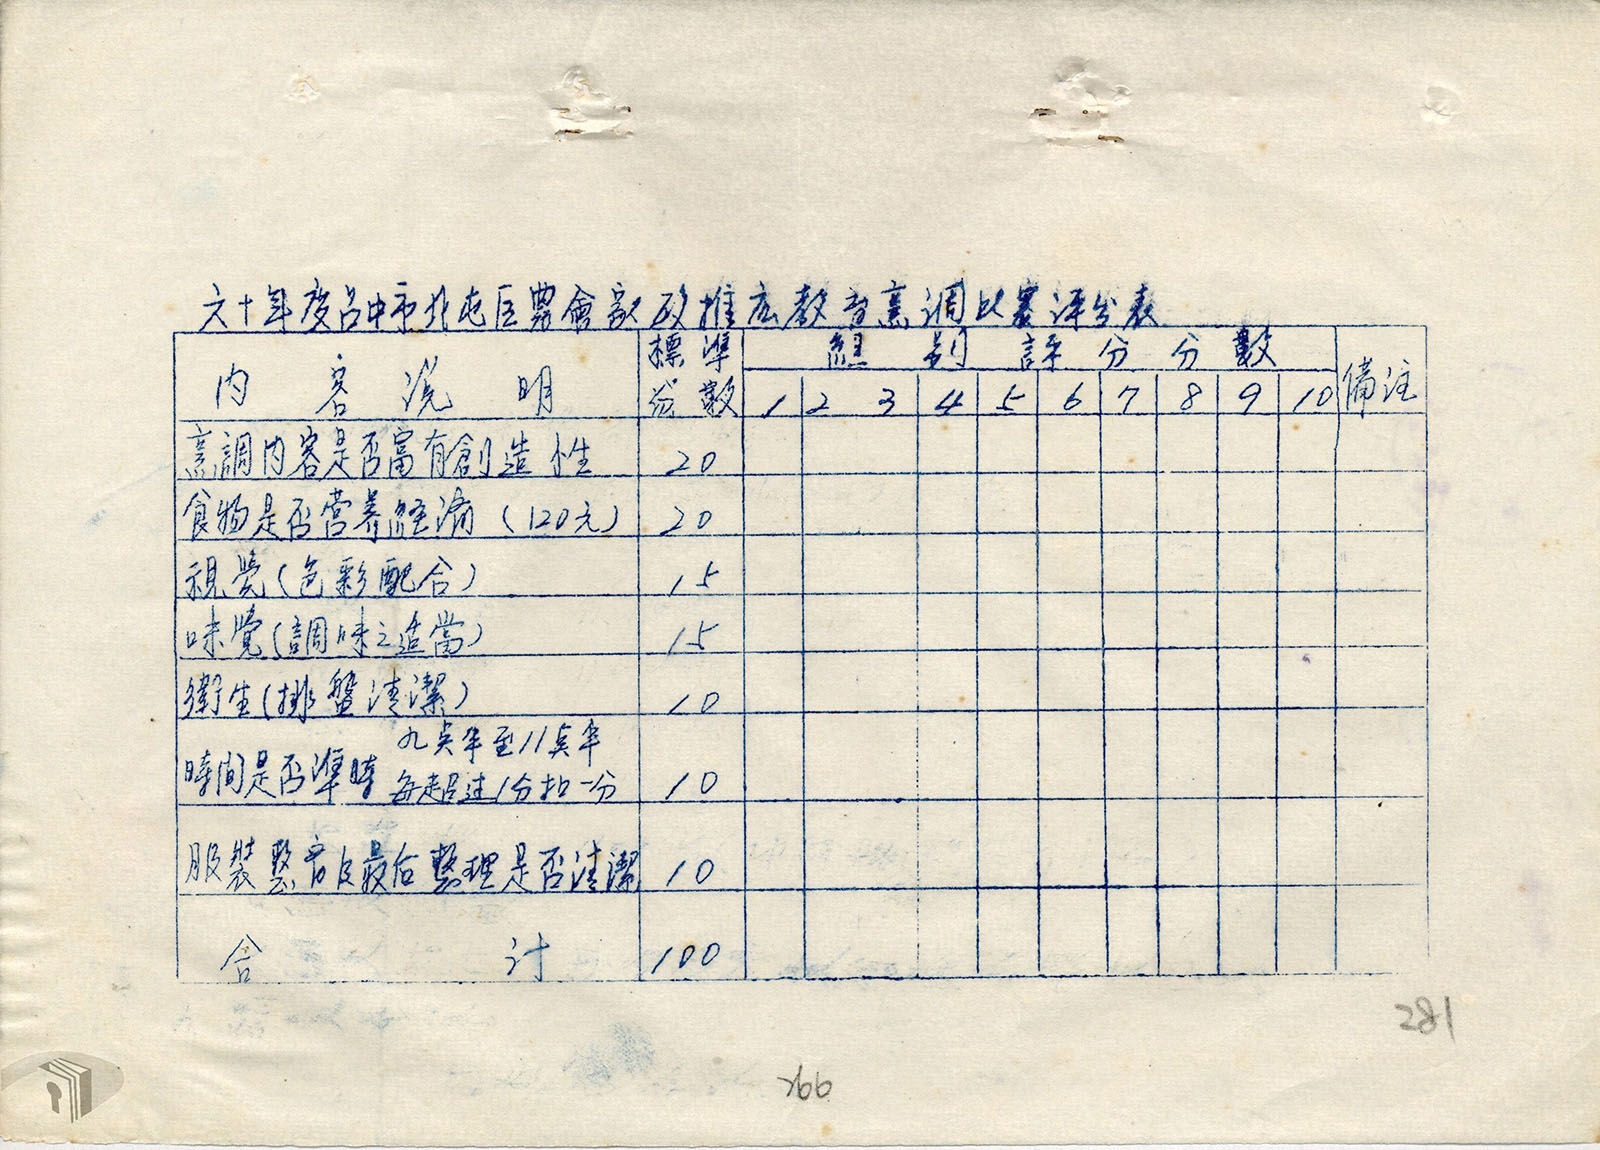 六十年度台中市北屯区農會家政推広教育烹調比賽評分表
內容說明 標準 組別評分分數 備註
分數 1 2 3 4 5 6 7 8 9 10
烹調內容是否富有創造性 20
食物是否营养經濟(120元) 20
視覺(色彩配合) 15
味覺(調味之适當) 15
衛生(排盤清潔) 10
九点半至11点半
時间是否準時 10
每超过1分扣一分
服裝整齐及最后整理是否清潔 10
合計 100
281
266